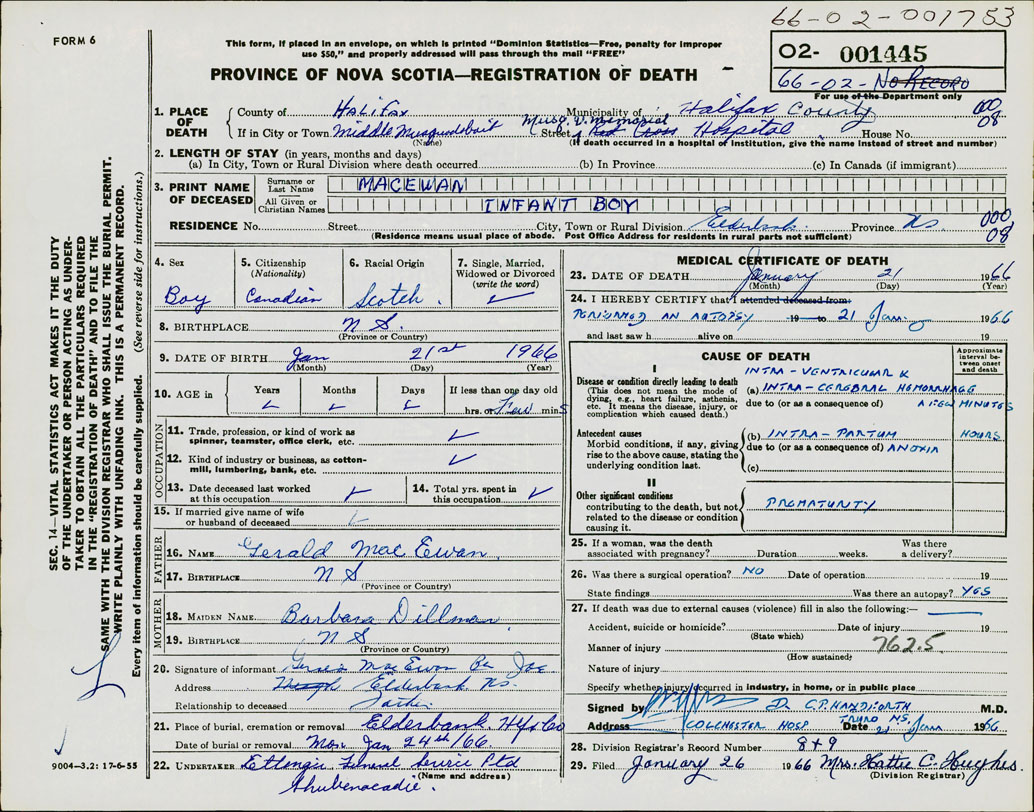 66-02-001753
FORM 6
This form, if placed in an envelope, on which is printed "Dominion Statistics—Free, penalty for improper
use $50," and properly addressed will pass through the mail "FREE"
PROVINCE OF NOVA SCOTIA—REGISTRATION OF DEATH
02- 001445
66-02-No Record
For use of the Department only
000
08
1. PLACE OF DEATH
County of Halifax Municipality of Halifax County
If in City or Town Middle Musquodoboit Street Musq. V. Memorial Red Cross Hospital House No.
(Name) (If death occurred in a hospital or institution, give the name instead of street and number)
2. LENGTH OF STAY (in years, months and days)
(a) In City, Town or Rural Division where death occurred (b) In Province (c) In Canada (if immigrant)
3. PRINT NAME OF DECEASED
Surname or Last Name MACEWAN
All Given or Christian Names INFANT BOY
RESIDENCE No. Street City, Town or Rural Division Elderbank Province NS
000
08
(Residence means usual place of abode. Post Office Address for residents in rural parts not sufficient)
4. Sex Boy
5. Citizenship (Nationality) Canadian
6. Racial Origin Scotch.
7. Single, Married, Widowed or Divorced (write the word)
8. BIRTHPLACE N S.
(Province or Country)
9. DATE OF BIRTH Jan 21st 1966
(Month) (Day) (Year)
10. AGE in Years Months Days If less than one day old
hrs. or Few mins
OCCUPATION
11. Trade, profession, or kind of work as spinner, teamster, office clerk, etc.
12. Kind of industry or business, as cotton-mill, lumbering, bank, etc.
13. Date deceased last worked at this occupation
14. Total yrs. spent in this occupation
15. If married give name of wife or husband of deceased
FATHER
16. NAME Gerald MacEwan
17. BIRTHPLACE N S
(Province or Country)
MOTHER
18. MAIDEN NAME Barbara Dillman
19. BIRTHPLACE N S
(Province or Country)
20. Signature of informant Gerald MacEwan Per
Address Elderbank NS.
Relationship to deceased Father
21. Place of burial, cremation or removal Elderbank Hfx Co
Date of burial or removal Mon Jan 24th/66
22. UNDERTAKER Ettinger Funeral Service Ltd
(Name and address)
Shubenacadie.
MEDICAL CERTIFICATE OF DEATH
23. DATE OF DEATH January 21 1966
(Month) (Day) (Year)
24. I HEREBY CERTIFY that I attended deceased from:
PERFORMED AN AUTOPSY 19 to 21 Jan 1966
and last saw h alive on 19
CAUSE OF DEATH
Approximate interval between onset and death
I
Disease or condition directly leading to death
(This does not mean the mode of dying, e.g., heart failure, asthenia, etc. It means the disease, injury, or complication which caused death.)
INTRA-VENTRICULAR &
(a) INTRA-CEREBRAL HEMORRHAGE
due to (or as a consequence of) A FEW MINUTES
Antecedent causes
Morbid conditions, if any, giving rise to the above cause, stating the underlying condition last.
(b) INTRA-PARTUM HOURS
due to (or as a consequence of) ANOXIA
(c)
II
Other significant conditions
contributing to the death, but not related to the disease or condition causing it.
PREMATURITY
25. If a woman, was the death associated with pregnancy? Duration weeks. Was there a delivery?
26. Was there a surgical operation? NO Date of operation 19
State findings Was there an autopsy? YES
27. If death was due to external causes (violence) fill in also the following:—
Accident, suicide or homicide? Date of injury 19
(State which)
Manner of injury 762.5
(How sustained)
Nature of injury
Specify whether injury occurred in industry, in home, or in public place
Signed by Dr C.P. HANDFORTH M.D.
Address COLCHESTER HOSP TRURO NS. Date 21 Jan 1966
28. Division Registrar's Record Number 8+9
29. Filed January 26 1966 Mrs. Hattie C. Hughes.
(Division Registrar)
SEC. 14—VITAL STATISTICS ACT MAKES IT THE DUTY
OF THE UNDERTAKER OR PERSON ACTING AS UNDER-
TAKER TO OBTAIN ALL THE PARTICULARS REQUIRED
IN THE "REGISTRATION OF DEATH" AND TO FILE THE
SAME WITH THE DIVISION REGISTRAR WHO SHALL ISSUE THE BURIAL PERMIT.
WRITE PLAINLY WITH UNFADING INK. THIS IS A PERMANENT RECORD.
Every item of information should be carefully supplied. (See reverse side for instructions.)
9004—3.2: 17-6-55